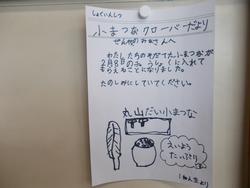 しょくいんしつ
小まつなクローバーだより
ぜんこうのみなさんへ
わたしたちのそだてた小まつなが
2月8日の
に入れて
もらえることになりました。
たのしみにしていてください。
丸山だい小まつな
えいよう
たっぷり
1ねん生より